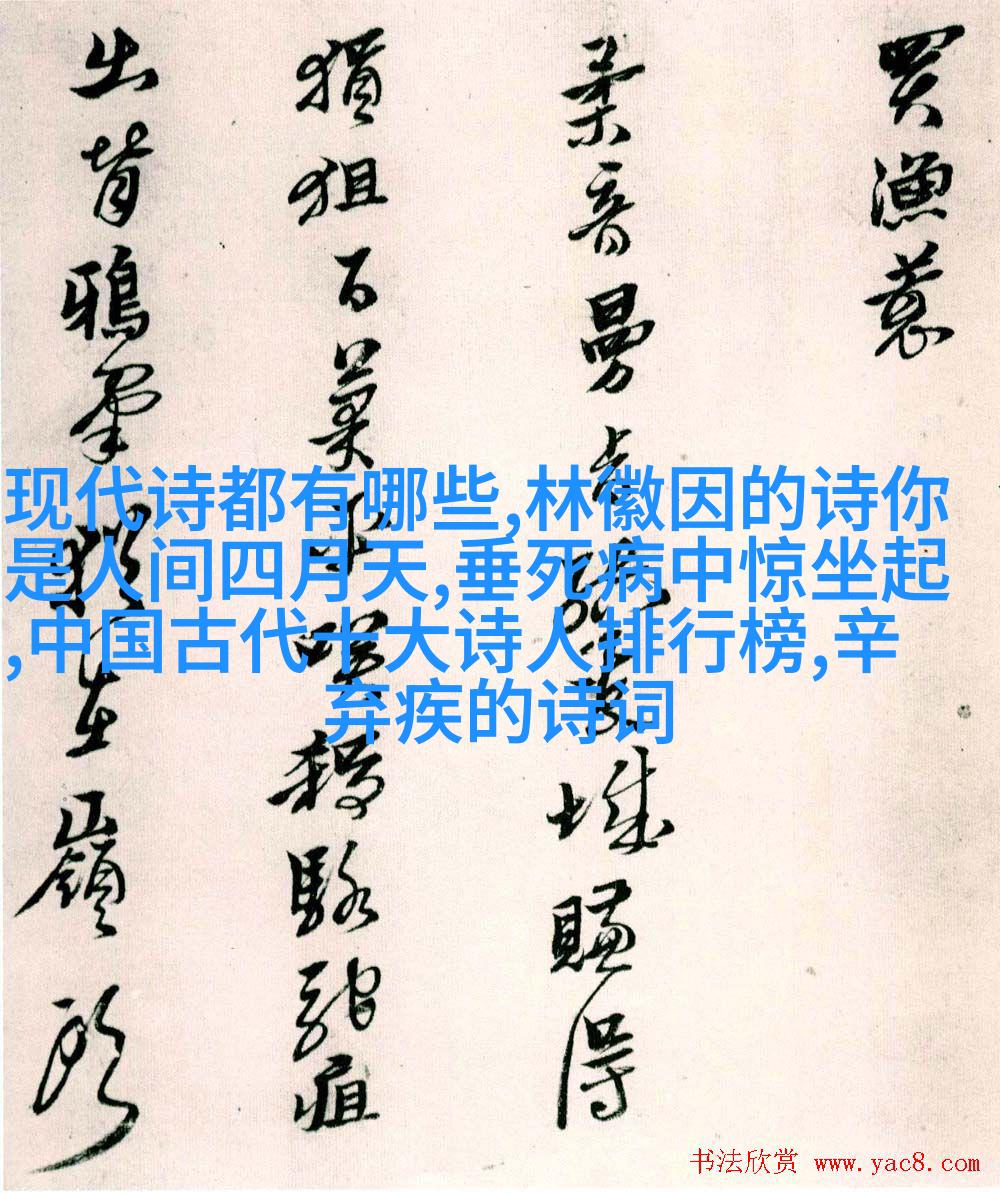 買漁蓑
柔音曼 賺得
狙百 駱駝疽
出背鴉 在嶺
现代诗都有哪些,林徽因的诗你
是人间四月天,垂死病中惊坐起
,中国古代十大诗人排行榜,辛
弃疾的诗词
书法欣赏 www.yac8.com